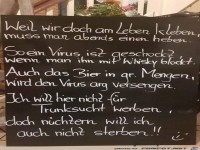 Weil wir doch am Leben kleben,
muss man abends einen heben
So ein Virus ist geschockt
wenn man ihn mit Whisky blockt.
Auch das Bier in gr. Mengen,
wird den Virus arg versengen.
Ich will hier nicht für
Trunksucht werben
doch nüchtern will ich
auch nicht sterben!!